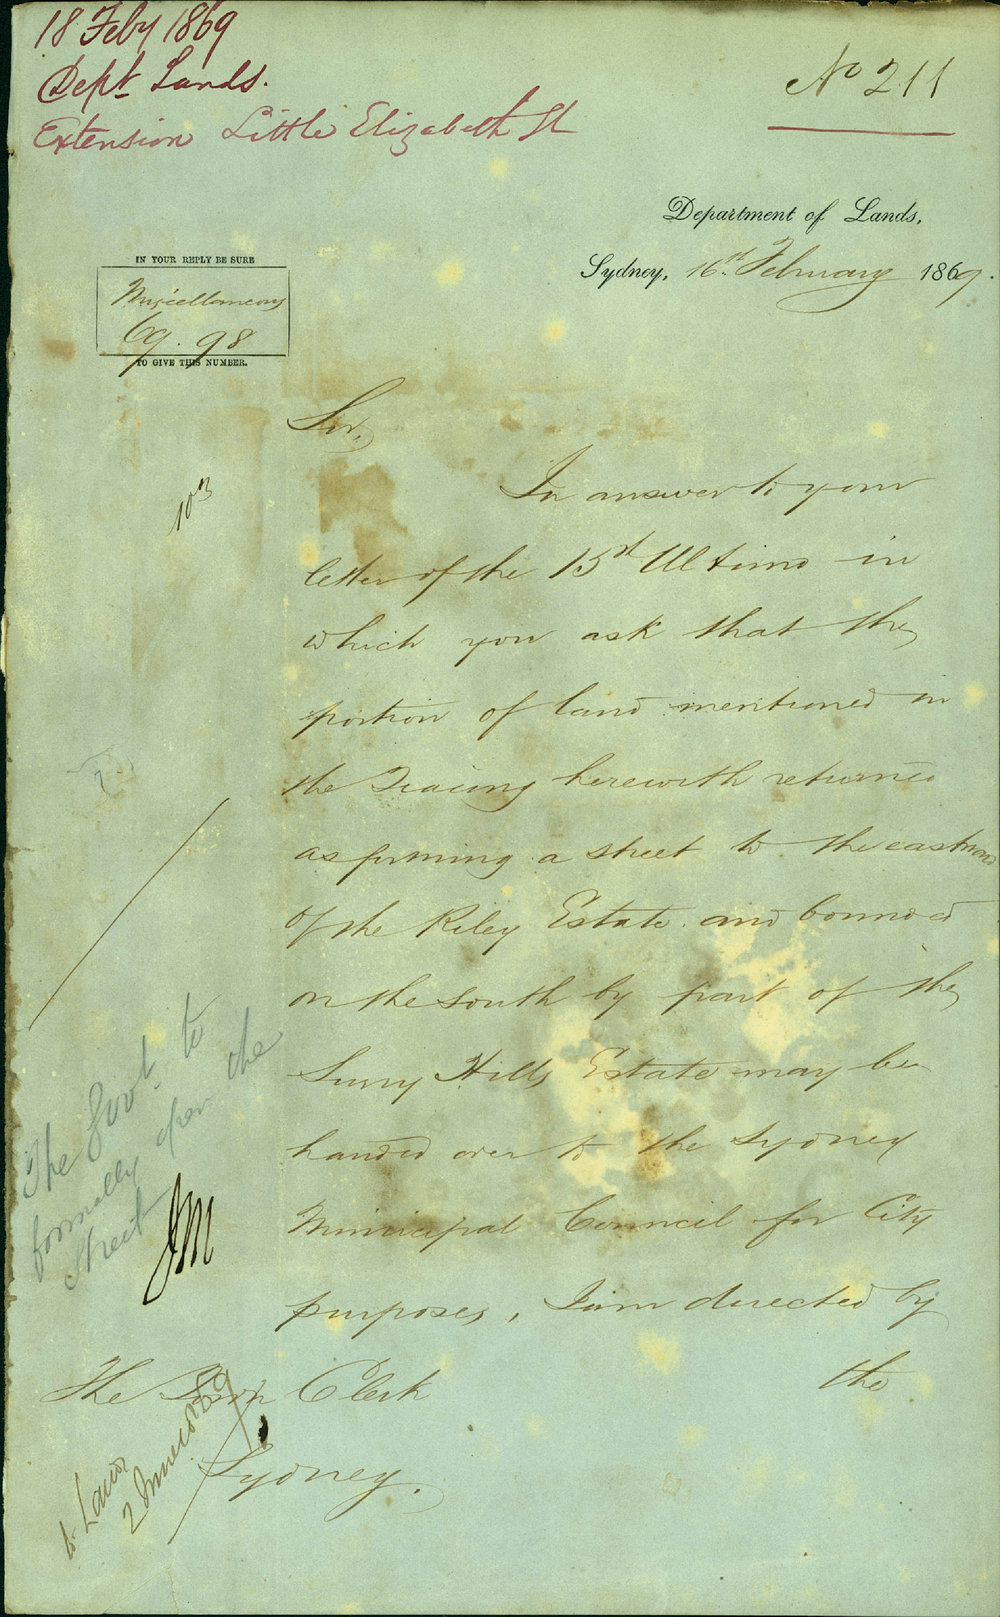 18 Feby 1869
Dept Lands.
Extension Little Elizabeth St
No 211
Department of Lands,
Sydney, 16th February 1869.
IN YOUR REPLY BE SURE
Miscellaneous
69.98
TO GIVE THIS NUMBER.
Sir,
In answer to your
letter of the 15th Ultimo in
which you ask that the
portion of land mentioned in
the Tracing herewith returned
as forming a street to the eastward
of the Riley Estate and bounded
on the South by part of the
Surry Hills Estate may be
handed over to the Sydney
Municipal Council for City
purposes, I am directed by
the
The Town Clerk
Sydney.
103
The Govt to
formally open the
Street
JM
to Lands
2 June 1869